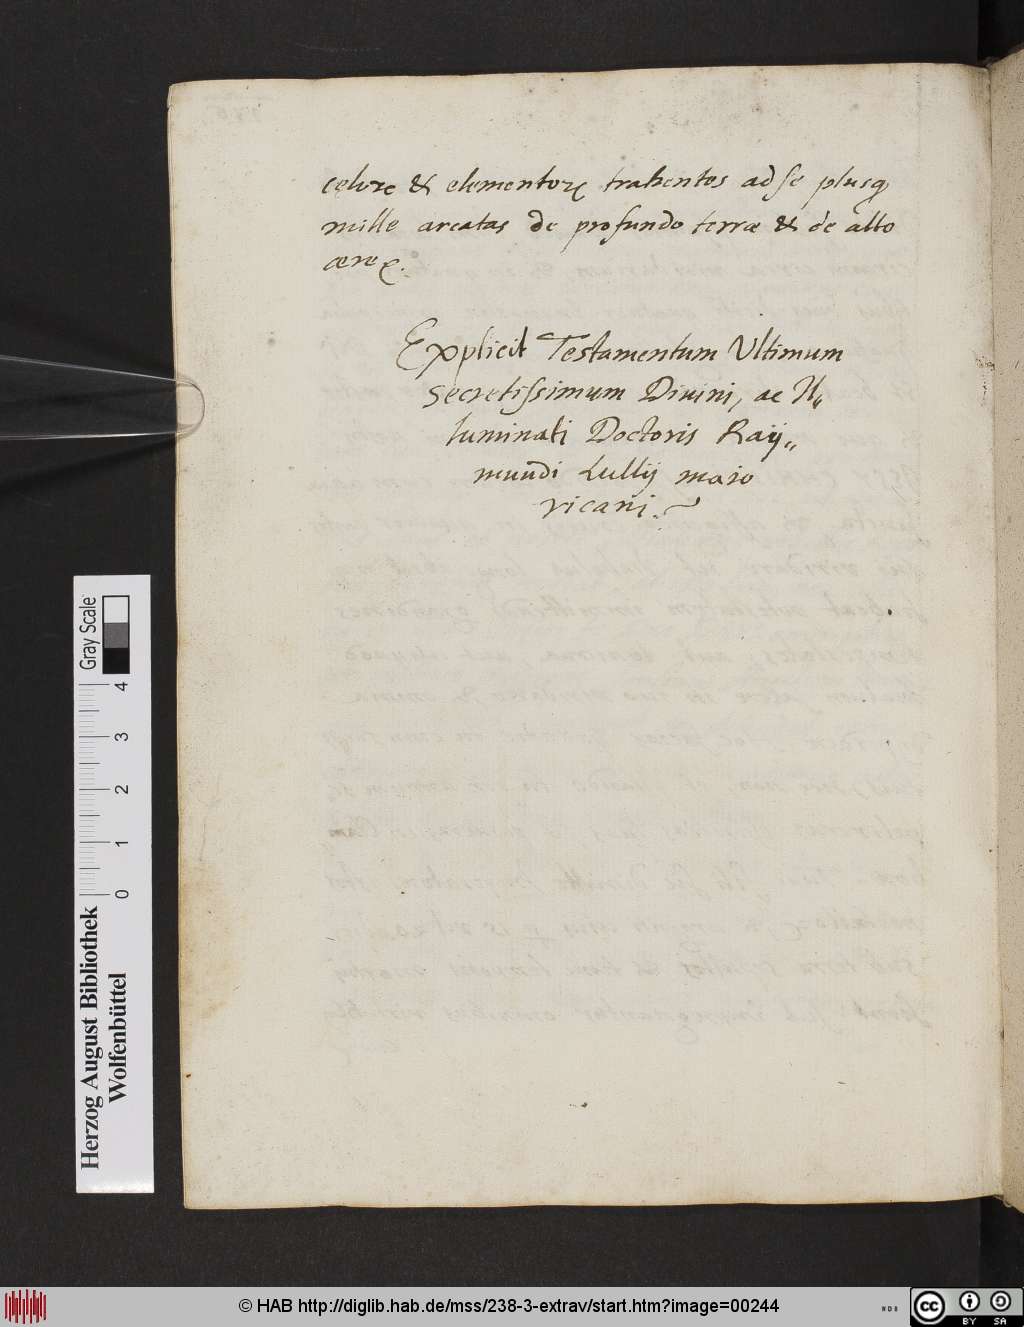 cęlorꝝ & elementorꝝ trahentes ad se plusq̃
mille arcatas de profundo terræ & de alto
ære
Explicit Testamentum Ultimum
secretissimum Divini, ac Il„
luminati Doctoris Raÿ„
mundi Lullij maio
ricani.
Gray Scale
4
3
2
1
0
Herzog August Bibliothek
Wolfenbüttel
© HAB http://diglib.hab.de/mss/238-3-extrav/start.htm?image=00244
NDB
cc
BY SA